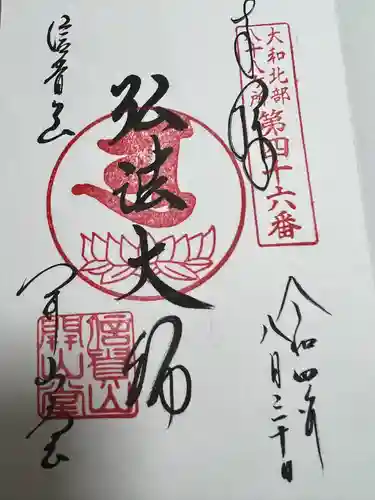 奉拝
大和北部
八十八ヶ所
第四十六番
令和四年
八月二十日
弘法大師
信貴山
開山堂
信貴山
開山堂